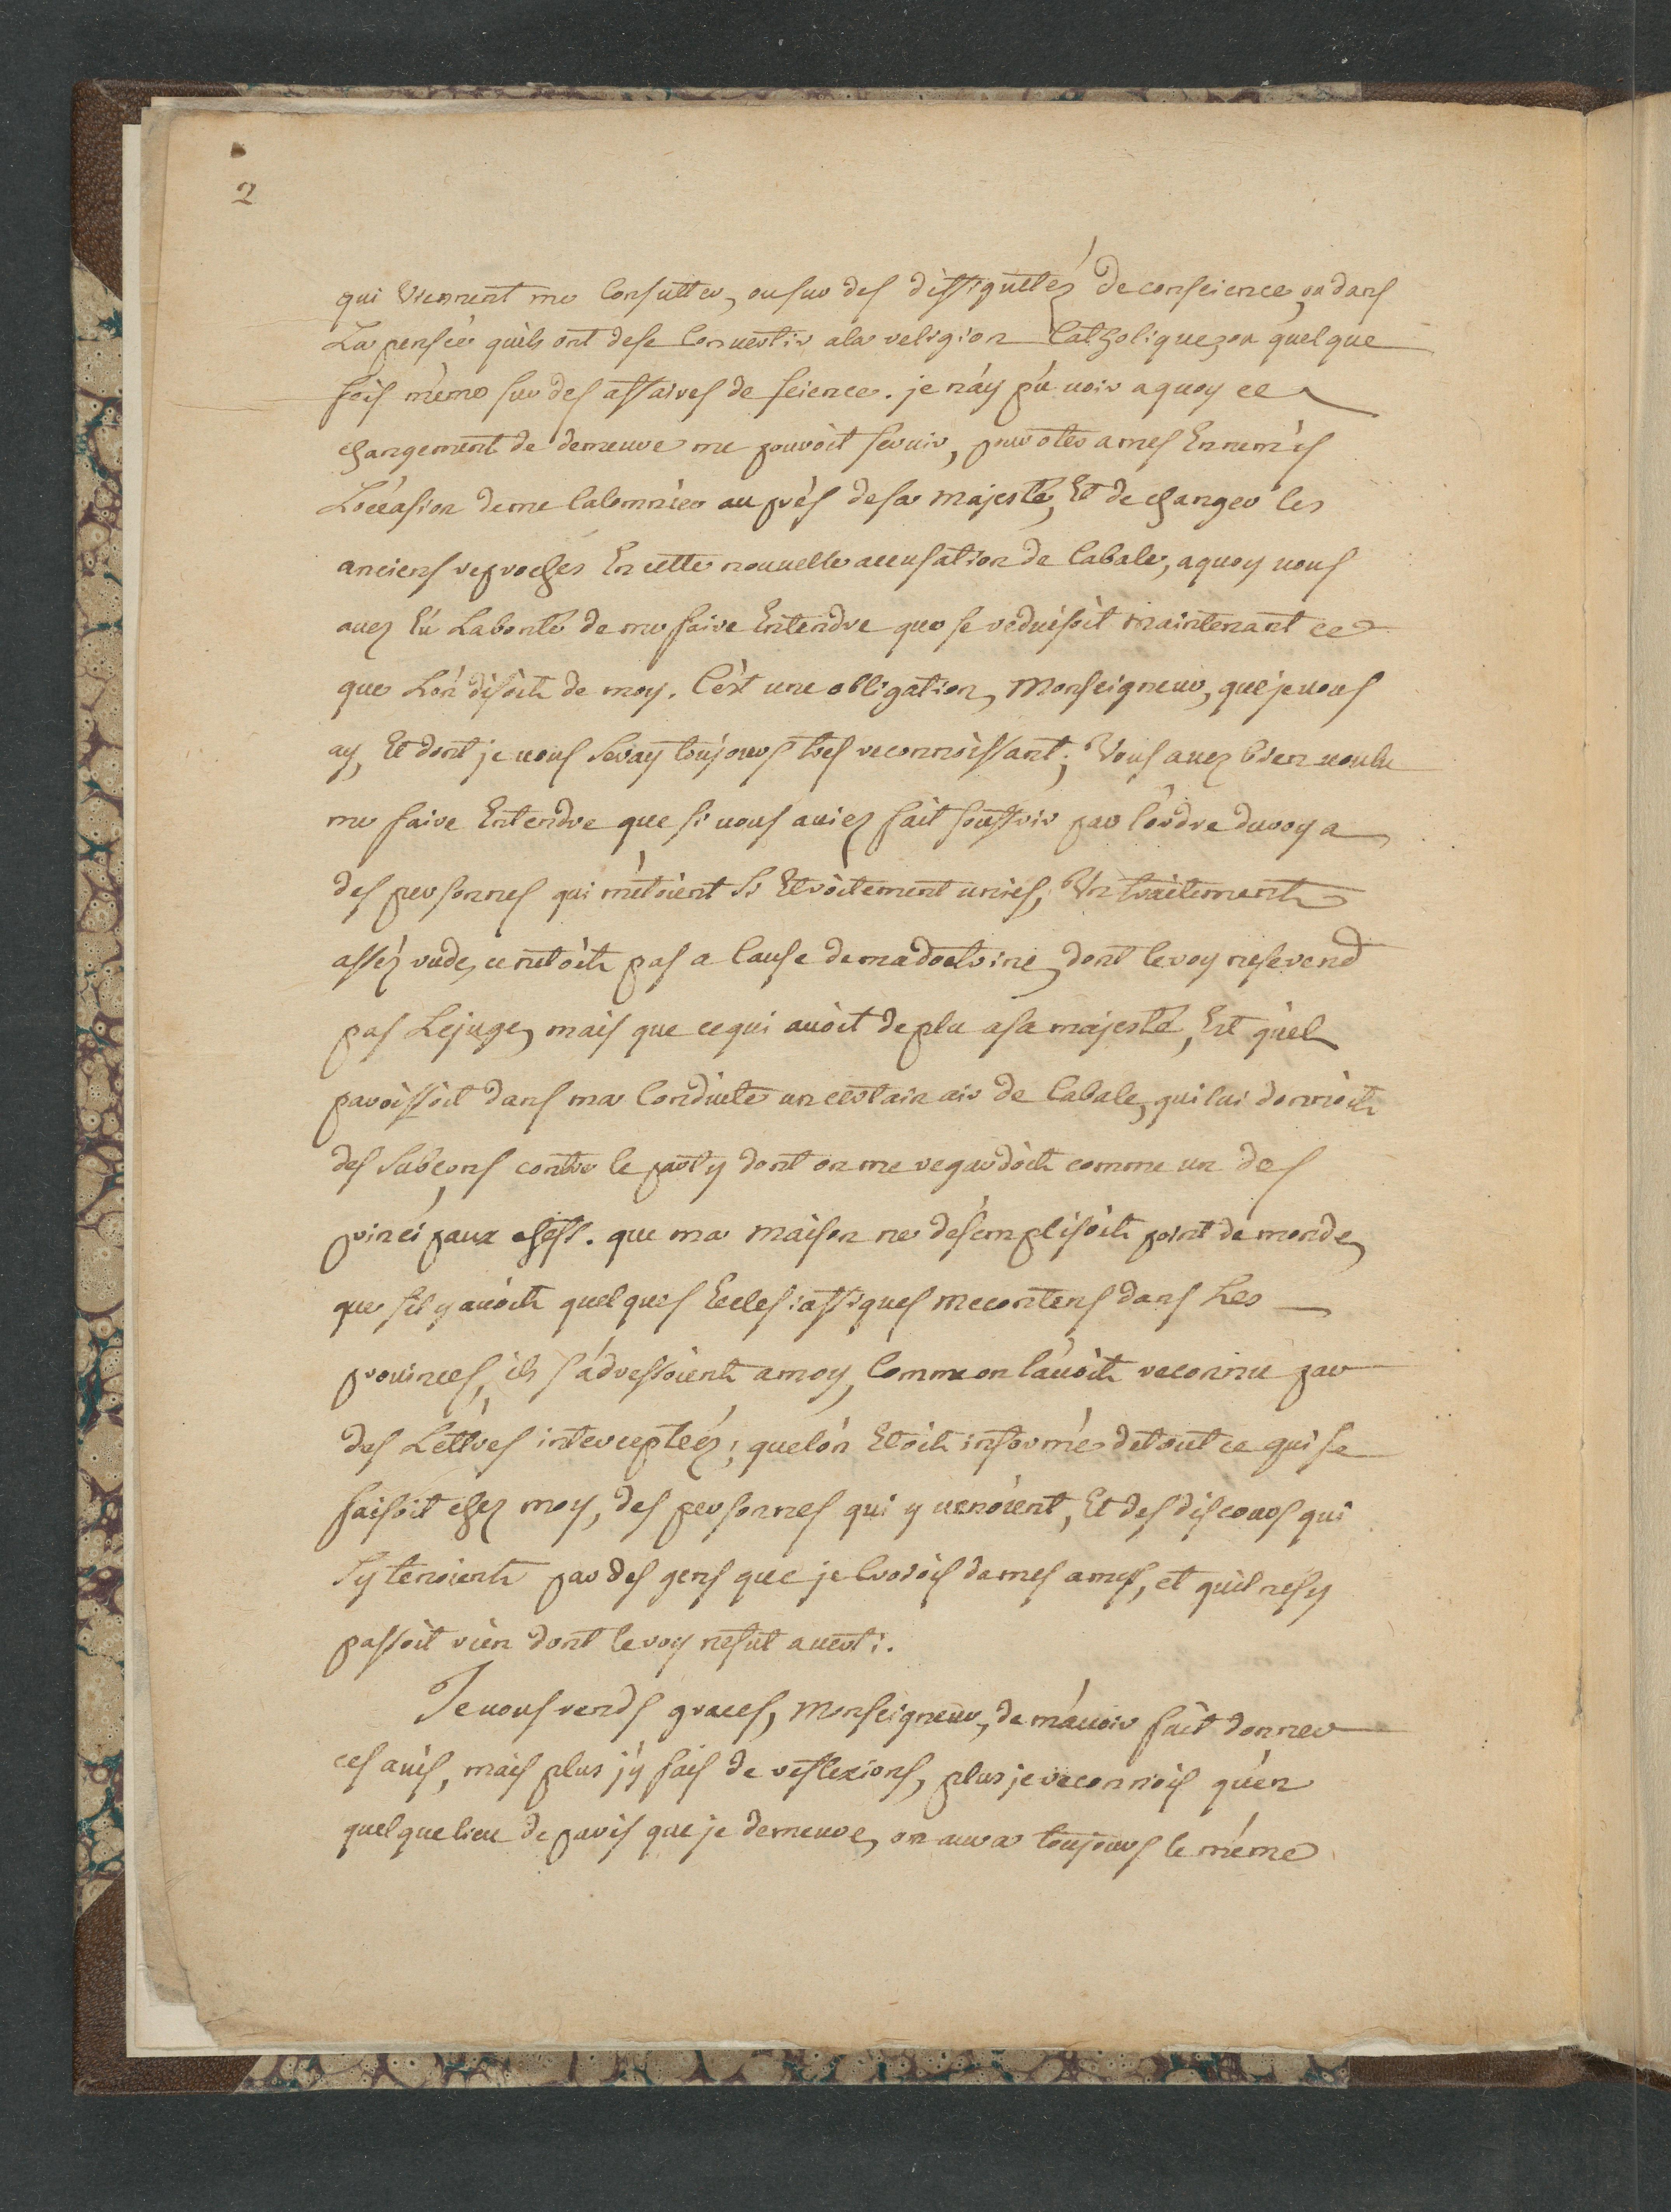 2
qui viennent me Consulter, ou sur des diffiqultéz de conscience, ou dans
La pensée qu'ils ont de se Convertir a la religion Catholique, ou quelque
fois même sur des affaires de science. je n'ay pû voir a quoy ce
changement de demeure me pouvoit servir, pour oter a mes Ennemis
L'occasion de me Calomnier auprès de sa majesté, Et de changer les
anciens reproches En cette nouvelle accusation de Cabale, a quoy vous
avez Eû La bonté de me faire Entendre que se reduisoit maintenant ce
que L'on disoit de moy. C'est une obligation, Monseigneur, que je vous
ay, Et dont je vous seray toujours tres reconnoissant; Vous avez bien voulu
me faire Entendre que si vous aviez fait souffrir par l'ordre du roy a
des personnes qui m'étoient si Etroitement unies, Un traitement
asséz rude, ce n'étoit pas a Cause de ma doctrine, dont le roy ne se rend
pas Le juge, mais que ce qui avoit deplu a sa majesté, Est qu'el
paroissoit dans ma Conduite un certain air de Cabale, qui lui donnoit
des soubçons contre le party dont on me regardoit comme un des
principaux chefs. que ma maison ne désemplisoit point de monde,
que s'il y avoit quelques Ecclesiastiques mecontens dans Les
provinces, ils s'adressoient a moy, Comme on l'avoit reconnu par
des Lettres interceptéez; que l'on Etoit informé de tout ce qui se
faisoit chez moy, des personnes qui y venoient, Et des discours qui
s'y tenoient par des gens que je Croiois de mes amys, et qu'il ne s'y
passoit rien dont le roy ne fut averti.
Je vous rends graces, Monseigneur, de m'avoir fait donner
ces avis, mais plus j'y fais de reflexions, plus je reconnois qu'en
quelque lieu de paris que je demeure, on aura toujours le même